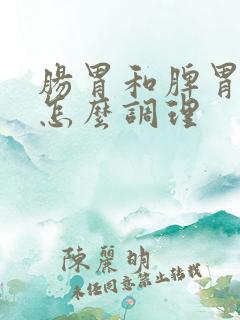 腸胃和脾胃
怎麼調理
陳麗明
未经同意禁止转载